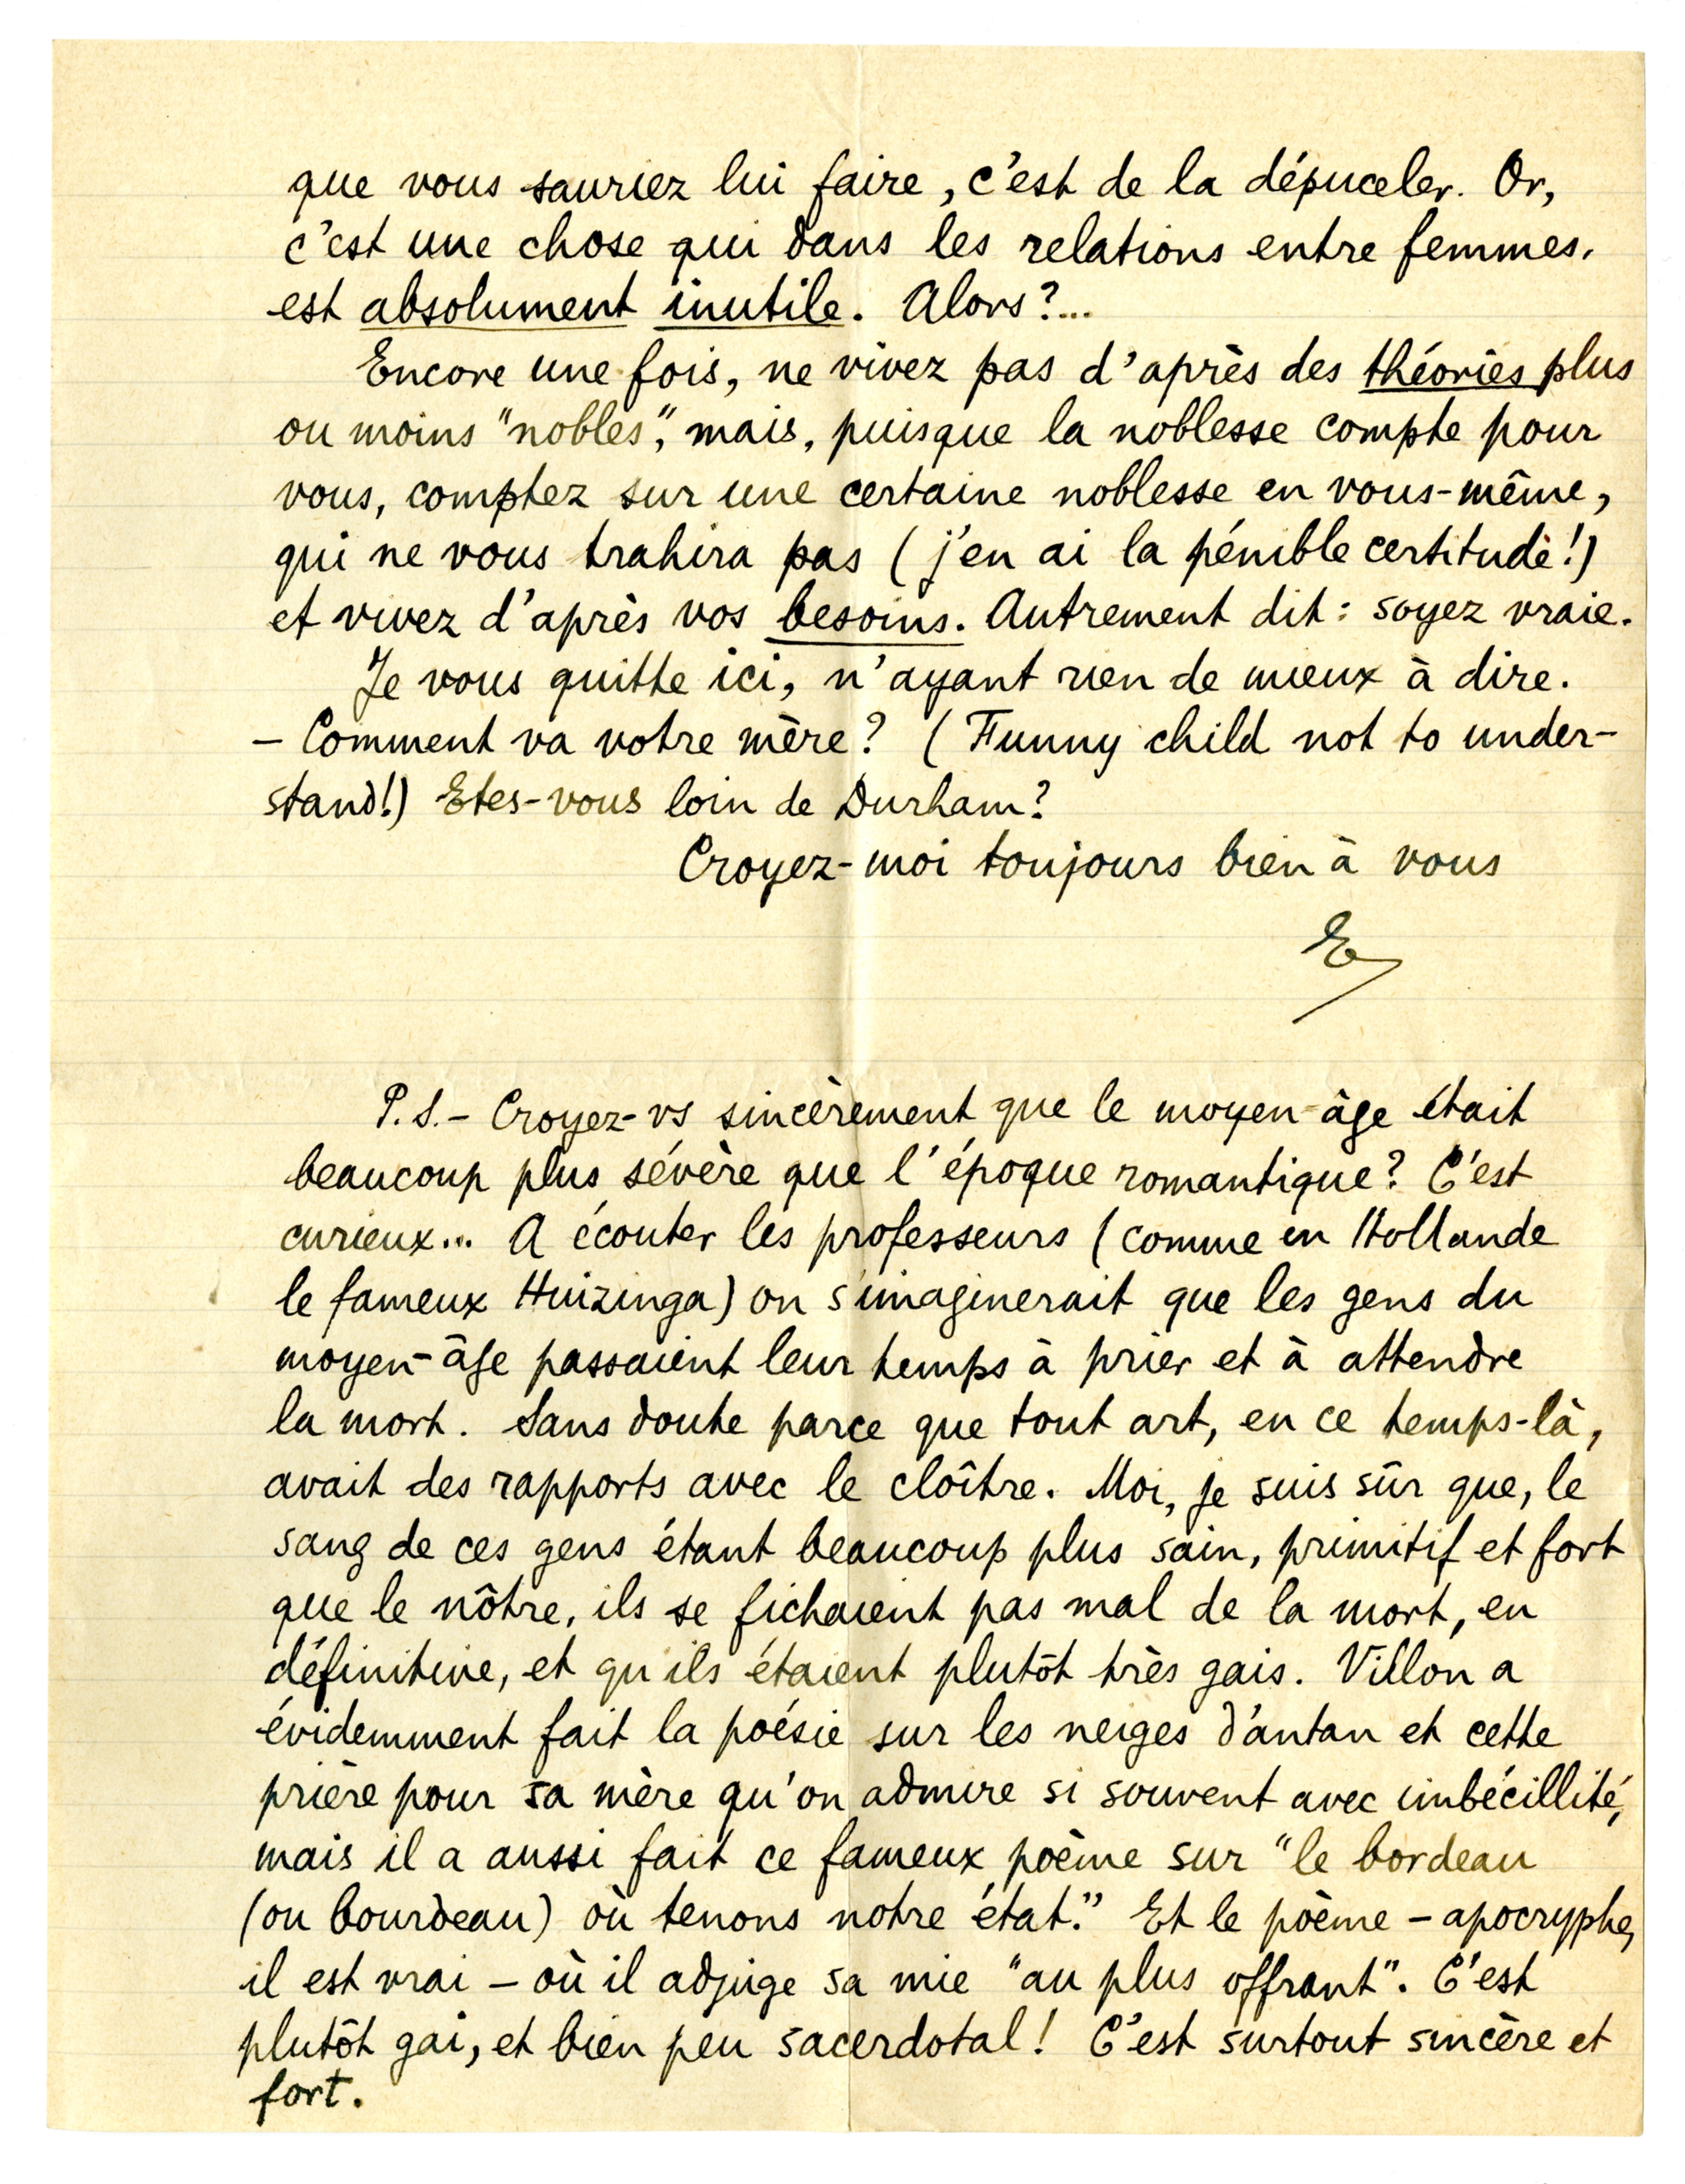 que vous sauriez lui faire, c'est de la dépuceler. Or,
c'est une chose qui dans les relations entre femmes,
est absolument inutile. Alors?...
Encore une fois, ne vivez pas d'après des théories plus
ou moins "nobles", mais, puisque la noblesse compte pour
vous, comptez sur une certaine noblesse en vous-même,
qui ne vous trahira pas (j'en ai la pénible certitude!)
et vivez d'après vos besoins. Autrement dit: soyez vraie.
Je vous quitte ici, n'ayant rien de mieux à dire.
– Comment va votre mère? (Funny child not to under-
stand!) Etes-vous loin de Durham?
Croyez-moi toujours bien à vous
E
P.S.– Croyez-vs sincèrement que le moyen-âge était
beaucoup plus sévère que l'époque romantique? C'est
curieux... A écouter les professeurs (comme en Hollande
le fameux Huizinga) on s'imaginerait que les gens du
moyen-âge passaient leur temps à prier et à attendre
la mort. Sans doute parce que tout art, en ce temps-là,
avait des rapports avec le cloître. Moi, je suis sûr que, le
sang de ces gens étant beaucoup plus sain, primitif et fort
que le nôtre, ils se fichaient pas mal de la mort, en
définitive, et qu'ils étaient plutôt très gais. Villon a
évidemment fait la poésie sur les neiges d'antan et cette
prière pour sa mère qu'on admire si souvent avec imbécillité,
mais il a aussi fait ce fameux poème sur "le bordeau
(ou bourdeau) où tenons notre état." Et le poème – apocryphe,
il est vrai – où il adjuge sa mie "au plus offrant". C'est
plutôt gai, et bien peu sacerdotal! C'est surtout sincère et
fort.